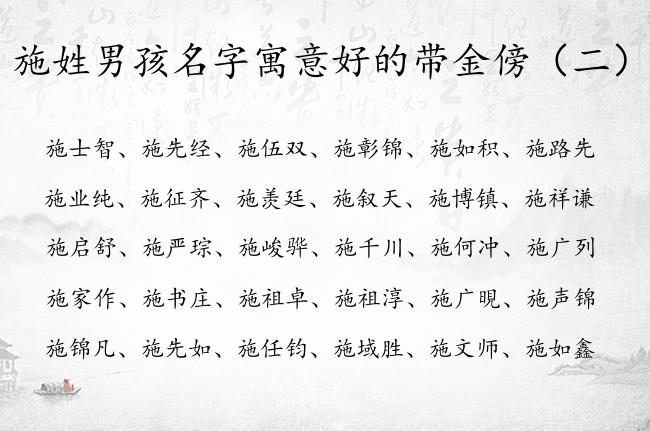 施姓男孩名字寓意好的带金傍（二）
施士智、施先经、施伍双、施彰锦、施如积、施路先
施业纯、施征齐、施羡廷、施叙天、施博镇、施祥谦
施启舒、施严琮、施峻骅、施千川、施何冲、施广列
施家作、施书庄、施祖卓、施祖淳、施广晛、施声锦
施锦凡、施先如、施任钧、施域胜、施文师、施如鑫